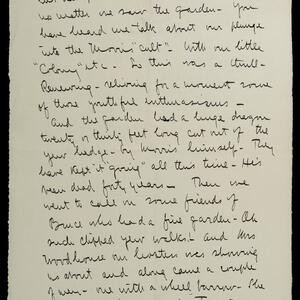 no matter we saw the garden - You
have heard me talk about our plunge
into the Morris "Cult". With our little
"Colony" etc. So this was a thrill -
Renewing - reliving for a moment some
of those youthful enthusiasms -
and the garden had a huge dragon
twenty or thirty feet long cut out of the
yew hedge - by Morris himself - They
have kept it "going" all this time - He's
been dead forty years - Then we
went to call on some friends of
Bruce who had a fine garden - Oh
such clipped yew walks! and Mrs
Woodhouse our hostess was showing
us about and along came a couple
of men - one with a wheel barrow - She